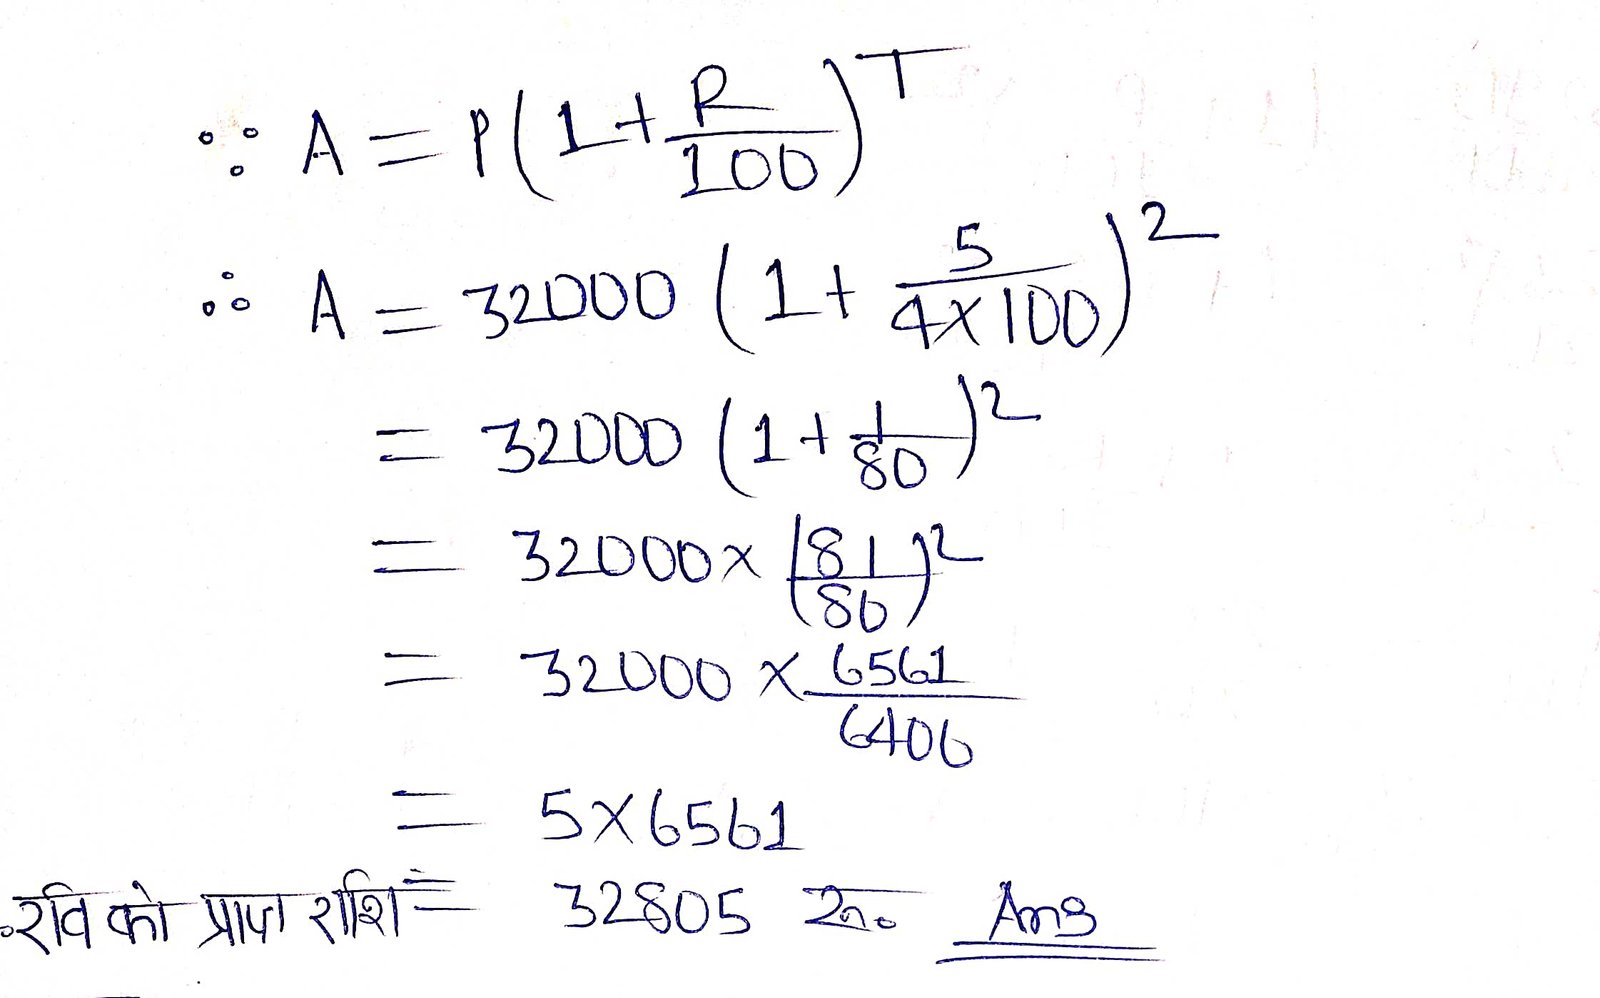 ∵ A = P(1+R/100)^T
∴ A = 32000 (1+ 5/4×100)^2
= 32000 (1+ 1/80)^2
= 32000× (81/80)^2
= 32000 × 6561/6400
= 5×6561
∴ रवि को प्राप्त राशि = 32805 रू. Ans